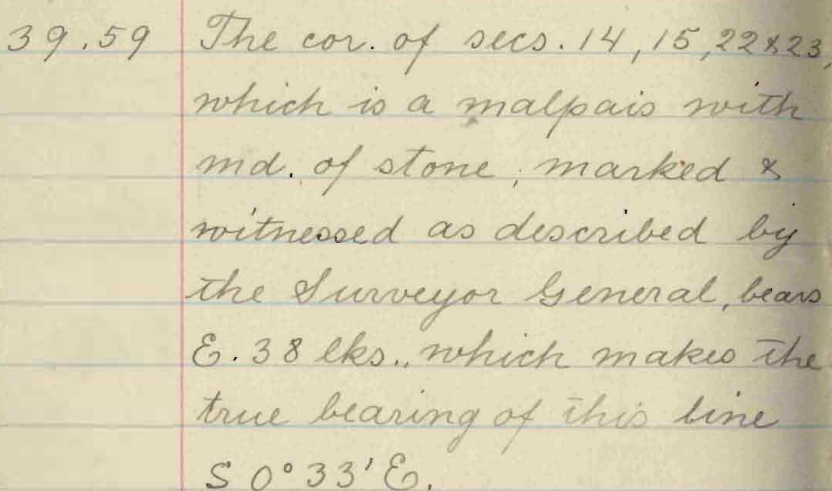 39.59 The cor. of secs. 14, 15, 22 & 23,
which is a malpais with
md. of stone, marked &
witnessed as described by
the Surveyor General, bears
E. 38 lks., which makes the
true bearing of this line
S 0° 33' E.